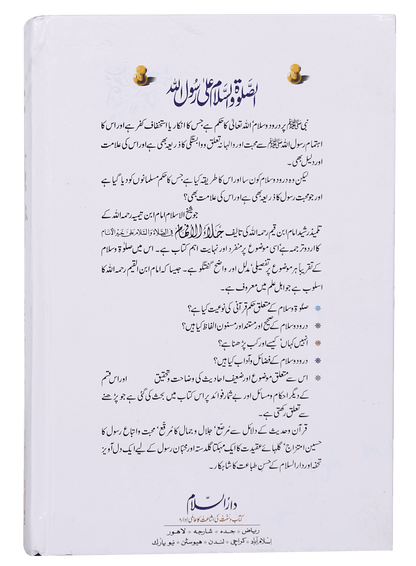 الصلوٰۃ والسلام علیٰ رسول اللہ
نبی ﷺ پر درود و سلام اللہ تعالیٰ کا حکم ہے جس کا انکار یا استخفاف کفر ہے اور اس کا
اہتمام رسول اللہ ﷺ سے محبت اور والہانہ تعلق و وابستگی کا ذریعہ بھی ہے اور اس کی علامت
اور دلیل بھی۔
لیکن وہ درود و سلام کون سا اور اس کا طریقہ کیا ہے جس کا حکم مسلمانوں کو دیا گیا ہے
اور جو محبت رسول کا ذریعہ بھی ہے اور اس کی علامت بھی؟
جو شیخ الاسلام امام ابن تیمیہ رحمہ اللہ کے
تلمیذ رشید امام ابن قیم رحمہ اللہ کی تالیف جلاء الافہام فی الصلاۃ والسلام علی خیر الانام
کا اردو ترجمہ ہے اسی موضوع پر منفرد اور نہایت اہم کتاب ہے۔ اس میں صلوٰۃ و سلام
کے تقریباً ہر موضوع پر تفصیلی، مدلل اور واضح گفتگو ہے۔ جیسا کہ امام ابن القیم رحمہ اللہ کا
اسلوب ہے جو اہل علم میں معروف ہے۔
صلوٰۃ و سلام کے متعلق حکم قرآنی کی نوعیت کیا ہے؟
درود و سلام کے صحیح اور مستند اور مسنون الفاظ کیا ہیں؟
انہیں کہاں، کیسے اور کب پڑھنا ہے؟
درود و سلام کے فضائل و آداب کیا ہیں؟
اس سے متعلق موضوع اور ضعیف احادیث کی وضاحت و تحقیق اور اس قسم
کے دیگر احکام و مسائل اور بے شمار فوائد پر اس کتاب میں بحث کی گئی ہے جو پڑھنے
سے تعلق رکھتی ہے۔
قرآن و حدیث کے دلائل سے مرصع، جلال و جمال کا مرقع، محبت و اتباع رسول کا
حسین امتزاج، گلہائے عقیدت کا ایک مہکتا گلدستہ اور محبان رسول کے لیے ایک دل آویز
تحفہ اور دارالسلام کے حسن طباعت کا شاہکار۔
دارالسلام
کتاب و سنت کی اشاعت کا عالمی ادارہ
ریاض ٭ جدہ ٭ شارجہ ٭ لاہور
اسلام آباد ٭ کراچی ٭ لندن ٭ ہیوسٹن ٭ نیو یارک